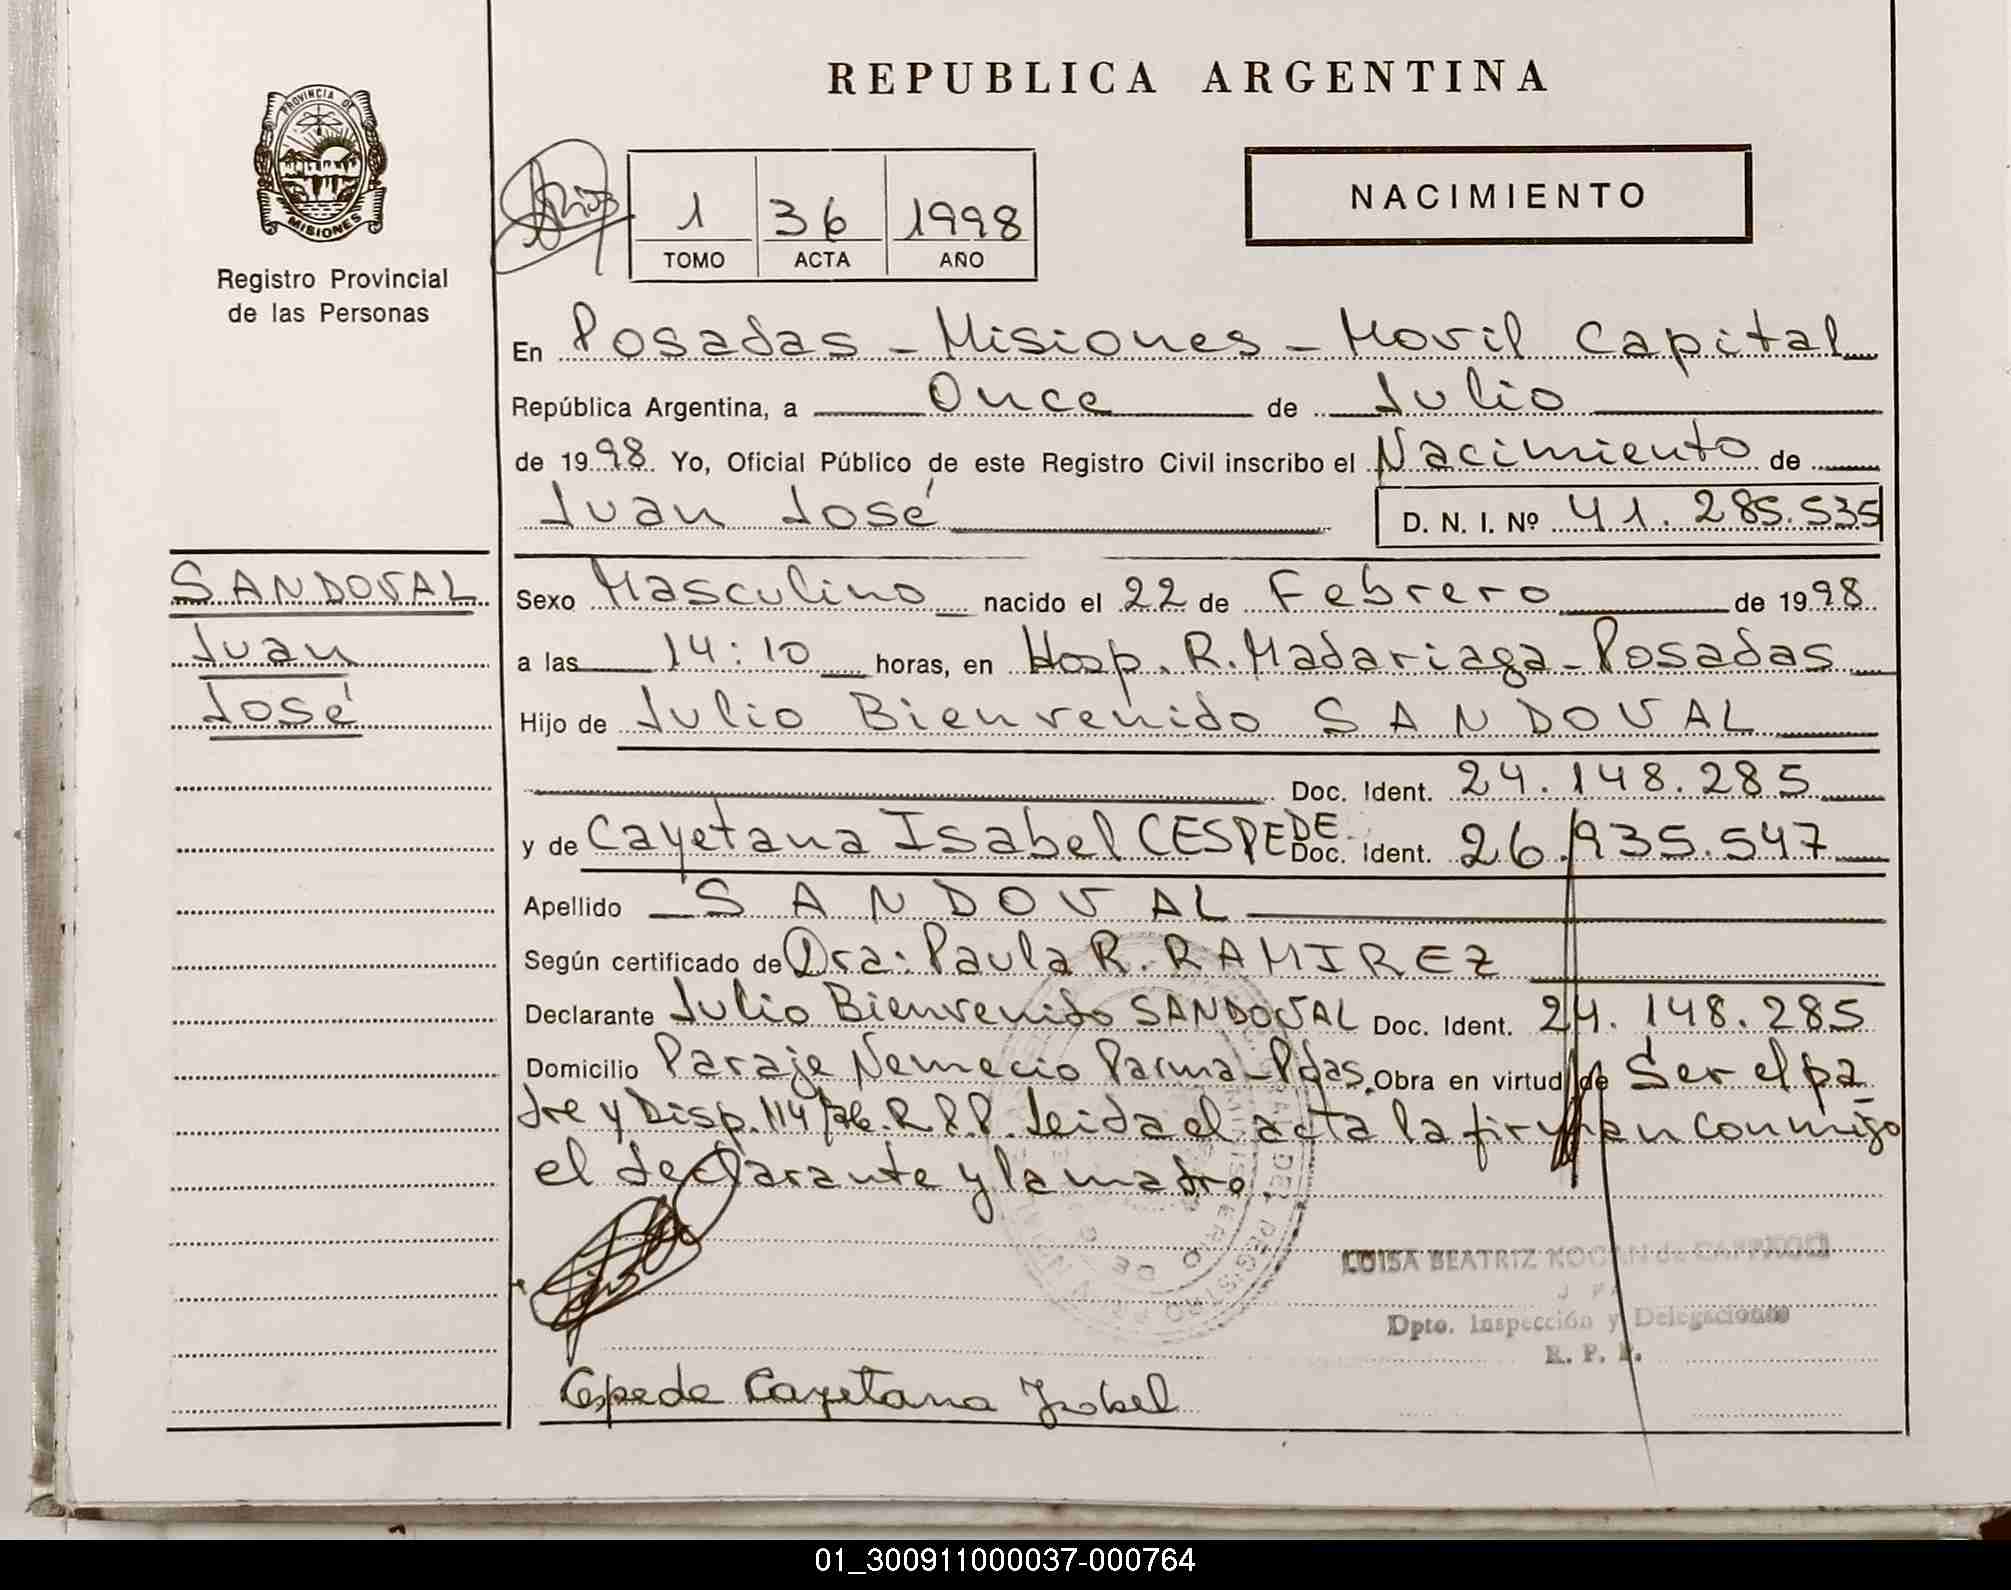 REPUBLICA ARGENTINA
PROVINCIA DE
MISIONES
Registro Provincial
de las Personas
1 36 1998
TOMO ACTA AÑO
NACIMIENTO
En Posadas - Misiones - Movil Capital
República Argentina, a Once de Julio
de 1998 Yo, Oficial Público de este Registro Civil inscribo el Nacimiento de
Juan José D. N. I. Nº 41.285.535
SANDOVAL
Juan
José
Sexo Masculino nacido el 22 de Febrero de 1998
a las 14:10 horas, en Hosp. R. Madariaga - Posadas
Hijo de Julio Bienvenido SANDOVAL
Doc. Ident. 24.148.285
y de Cayetana Isabel CESPEDE DE Doc. Ident. 26.935.547
Apellido SANDOVAL
Según certificado de Dra: Paula R. RAMIREZ
Declarante Julio Bienvenido SANDOVAL Doc. Ident. 24.148.285
Domicilio Paraje Nemecio Parma - Pdas. Obra en virtud de Ser el pa
dre y Disp. 114/96. R.P.P. Leida el acta la firman conmigo
el declarante y la madre.
LUISA BEATRIZ KOGAN de
Dpto. Inspección y Delegaciones
R. P. P.
Cespede Cayetana Isabel
01_300911000037-000764